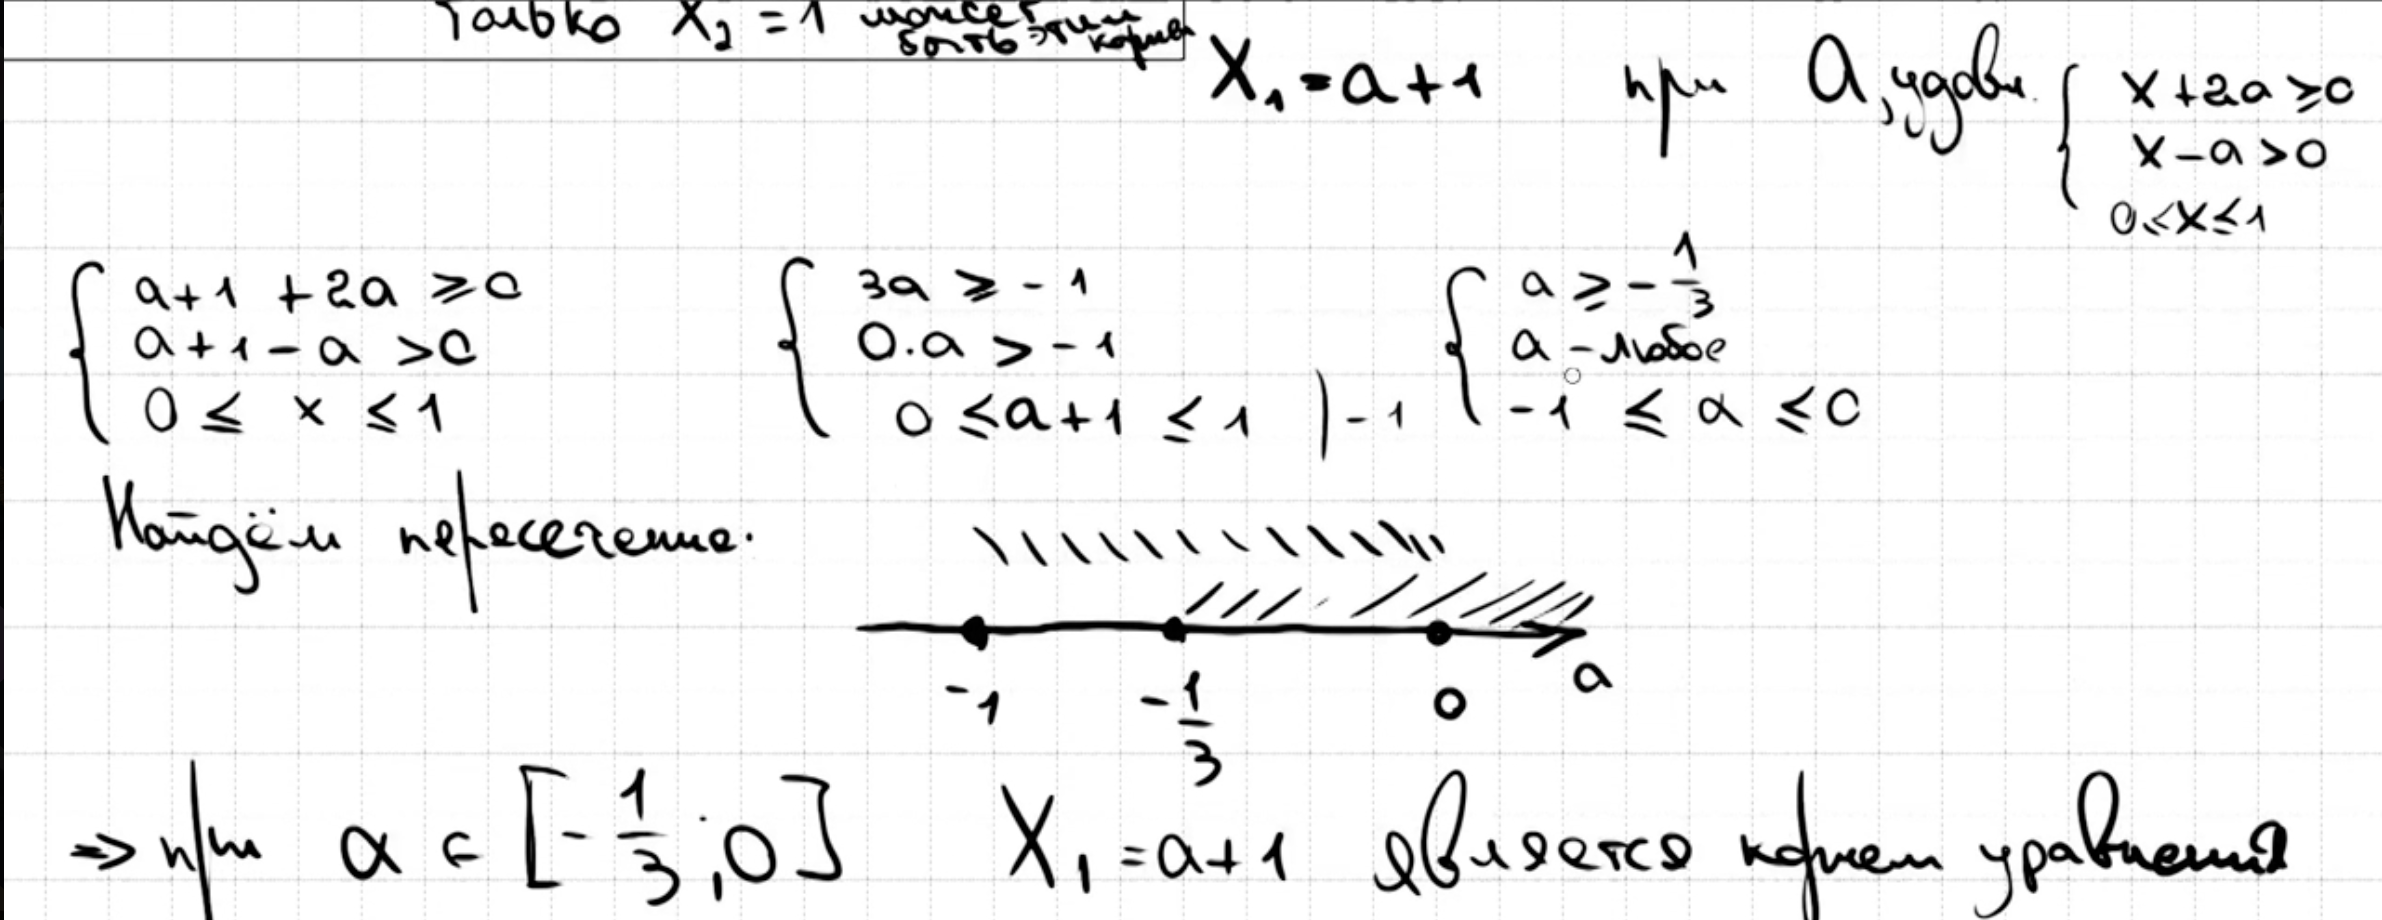 только x₂ = 1 может быть этим корнем
x₁ = a+1 при a, удовл. { x+2a ≥ 0
x−a > 0
0 ≤ x ≤ 1
{ a+1+2a ≥ 0 { 3a ≥ -1 { a ≥ -1/3
a+1−a > 0 0·a > -1 a - любое
0 ≤ x ≤ 1 0 ≤ a+1 ≤ 1 |-1 -1 ≤ a ≤ 0
Найдём пересечение.
-1 -1/3 0 a
⇒ при a ∈ [-1/3; 0] x₁ = a+1 является корнем уравнения